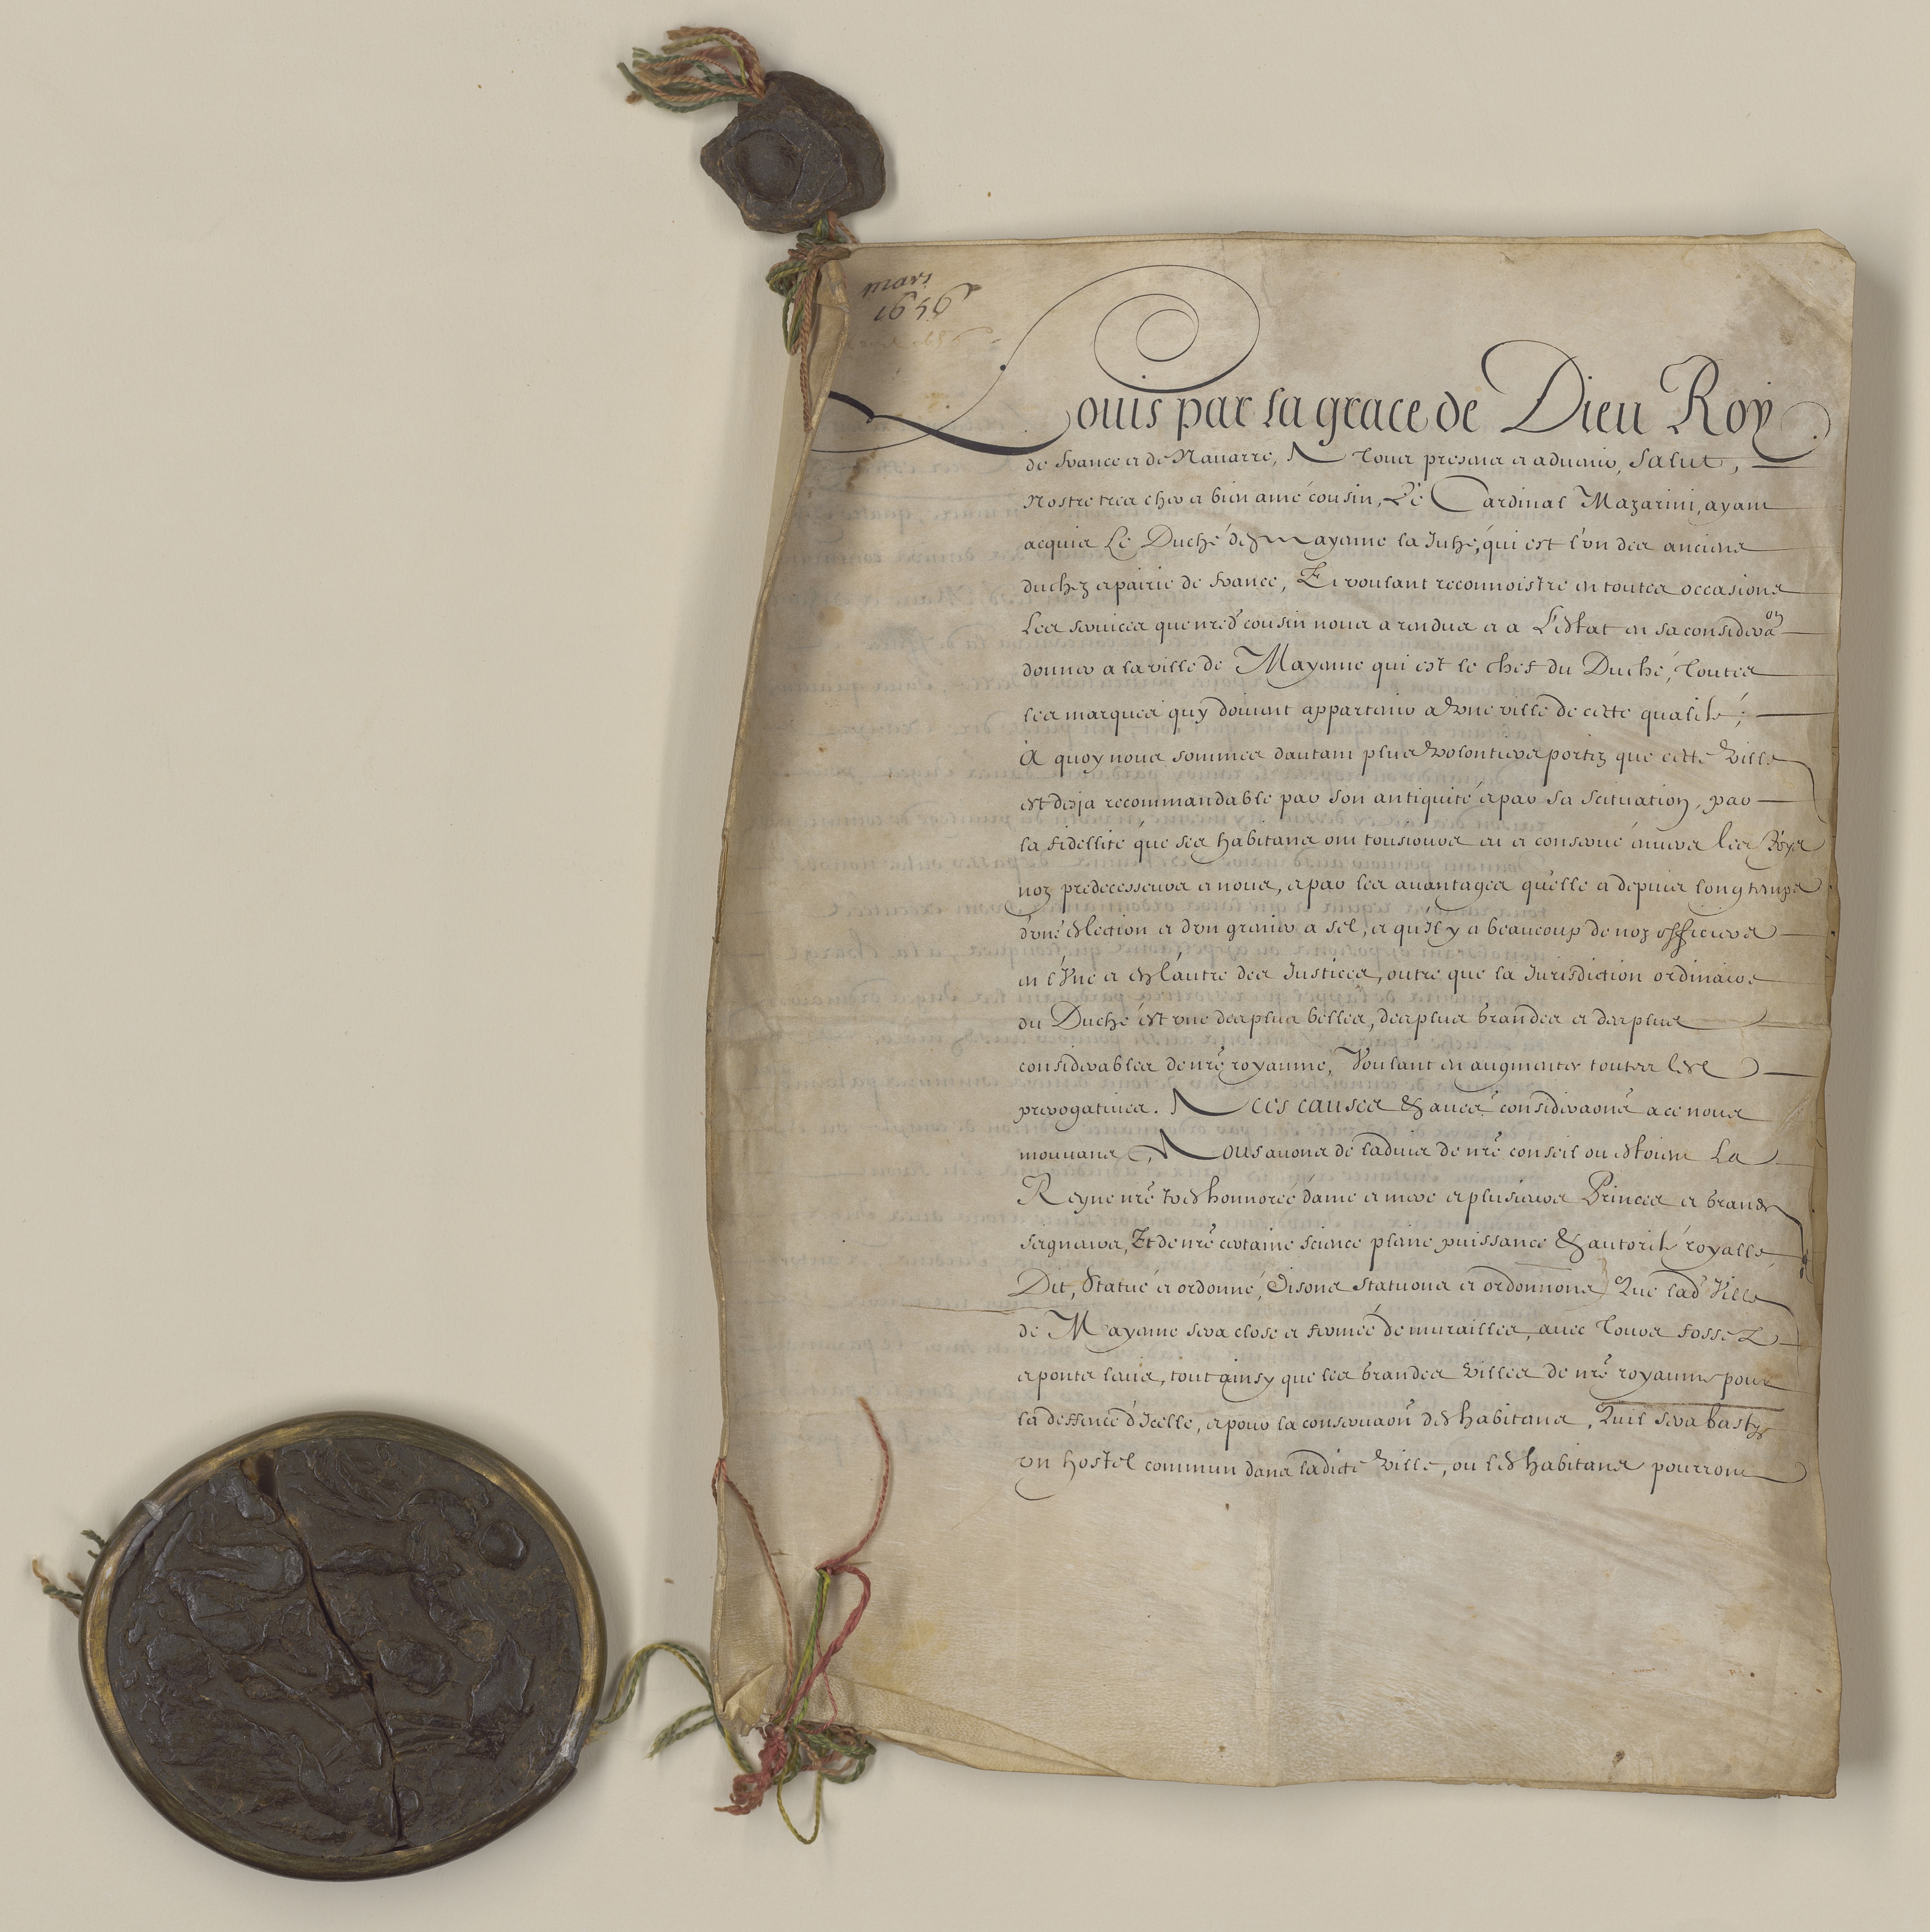 mars
1656
Louis par la grace de Dieu Roy
de france et de Nauarre, A Tous presens et aduenir, Salut,
Nostre tres cher et bien amé cousin, Le Cardinal Mazarini, ayant
acquis Le Duché de Mayenne la Juhé, qui est l'vn des anciens
duchez et pairie de france, Et voulant reconnoistre en toutes occasions
Les seruices que nred cousin nous a rendus et a L'estat en sa consideraon
donner a la ville de Mayenne qui est le chef du Duché, Toutes
les marques quy doiuent appartenir a vne ville de cette qualité;
A quoy nous sommes dautant plus volontiers portez que cette ville
est desja recommandable par son antiquité et par sa scituation, par
la fidellité que ses habitans ont tousiours eu et conserué enuers les Roys
noz predecesseurs et nous, et par les auantages qu'elle a depuis longtemps
d'vne eslection et d'vn grenier a sel, et qu'il y a beaucoup de noz officiers
en l'vne et en l'autre des Justices, outre que la Jurisdiction ordinaire
du Duché est vne des plus belles, des plus grandes et des plus
considerables de nre royaume, Voulant en augmenter toutes les
prerogatiues. A ces causes et autres consideraons a ce nous
mouuans, Nous auons de laduis de nre conseil ou estoient La
Reyne nre tres honnorée dame et mere et plusieurs Princes et grands
seigneurs, Et de nre certaine science plaine puissance et autorité royalle
Dit, Statué et ordonné, Disons statuons et ordonnons Que lad Ville
de Mayenne sera close et fermée de murailles, auec Tours fossez
et ponts leuis, tout ainsy que les grandes villes de nre royaume pour
la deffence d'Icelle, et pour la conseruaon des habitans, Quil sera basty
vn hostel commun dans ladicte ville, ou les habitans pourront